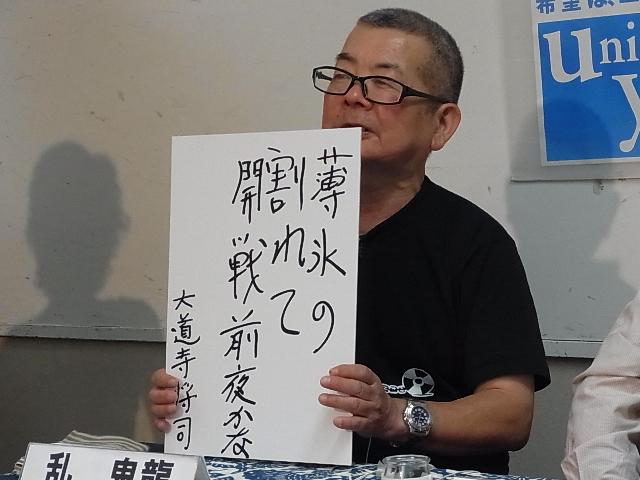 薄氷の
割れて
開戦前夜かな
大道寺将司
乱 鬼龍
希望は
uni
y